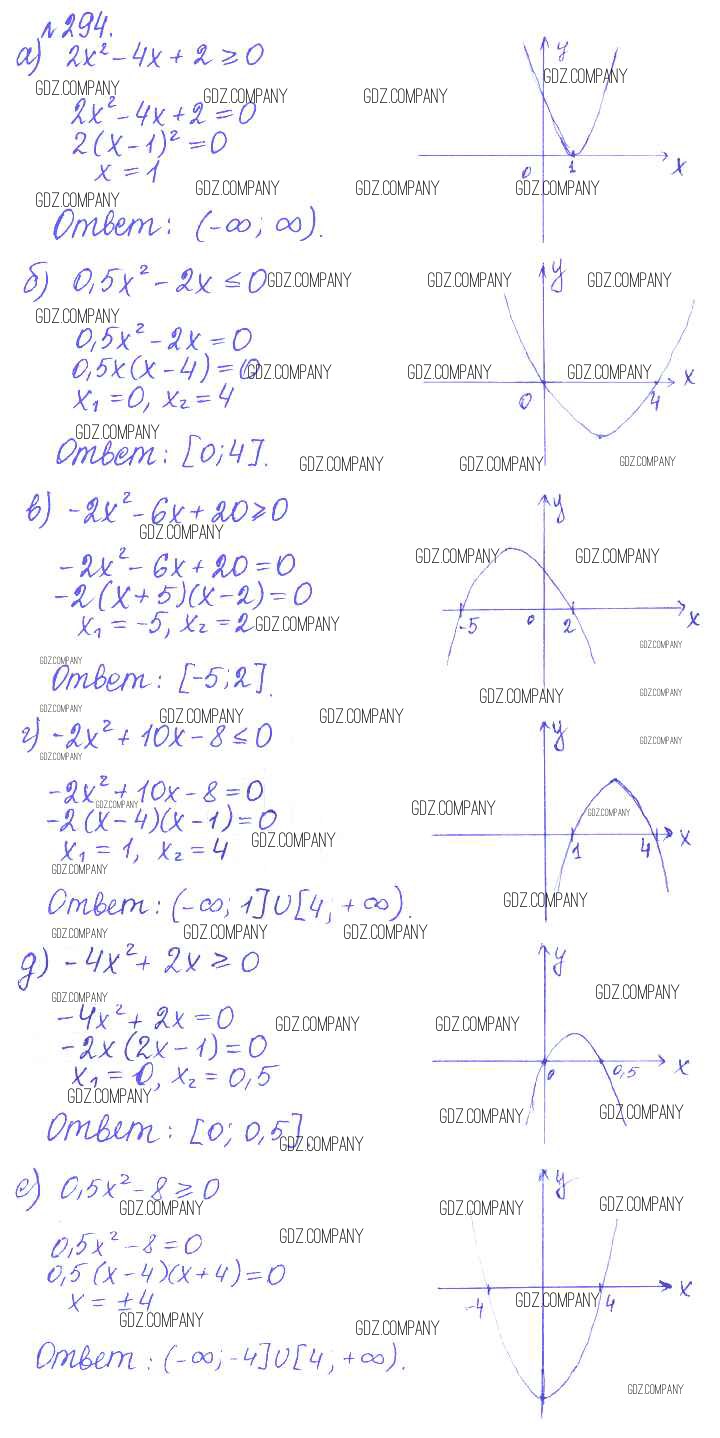 №294.
а) 2x² - 4x + 2 ≥ 0
2x² - 4x + 2 = 0
2(x - 1)² = 0
x = 1
Ответ: (-∞; ∞).
y
0 1 x
б) 0,5x² - 2x ≤ 0
0,5x² - 2x = 0
0,5x(x - 4) = 0
x₁ = 0, x₂ = 4
Ответ: [0; 4].
y
0 4 x
в) -2x² - 6x + 20 ≥ 0
-2x² - 6x + 20 = 0
-2(x + 5)(x - 2) = 0
x₁ = -5, x₂ = 2
Ответ: [-5; 2].
y
-5 0 2 x
г) -2x² + 10x - 8 ≤ 0
-2x² + 10x - 8 = 0
-2(x - 4)(x - 1) = 0
x₁ = 1, x₂ = 4
Ответ: (-∞; 1]U[4; +∞).
y
1 4 x
д) -4x² + 2x ≥ 0
-4x² + 2x = 0
-2x(2x - 1) = 0
x₁ = 0, x₂ = 0,5
Ответ: [0; 0,5]
y
0 0,5 x
е) 0,5x² - 8 ≥ 0
0,5x² - 8 = 0
0,5(x - 4)(x + 4) = 0
x = ±4
Ответ: (-∞; -4]U[4; +∞).
y
-4 4 x
GDZ.COMPANY